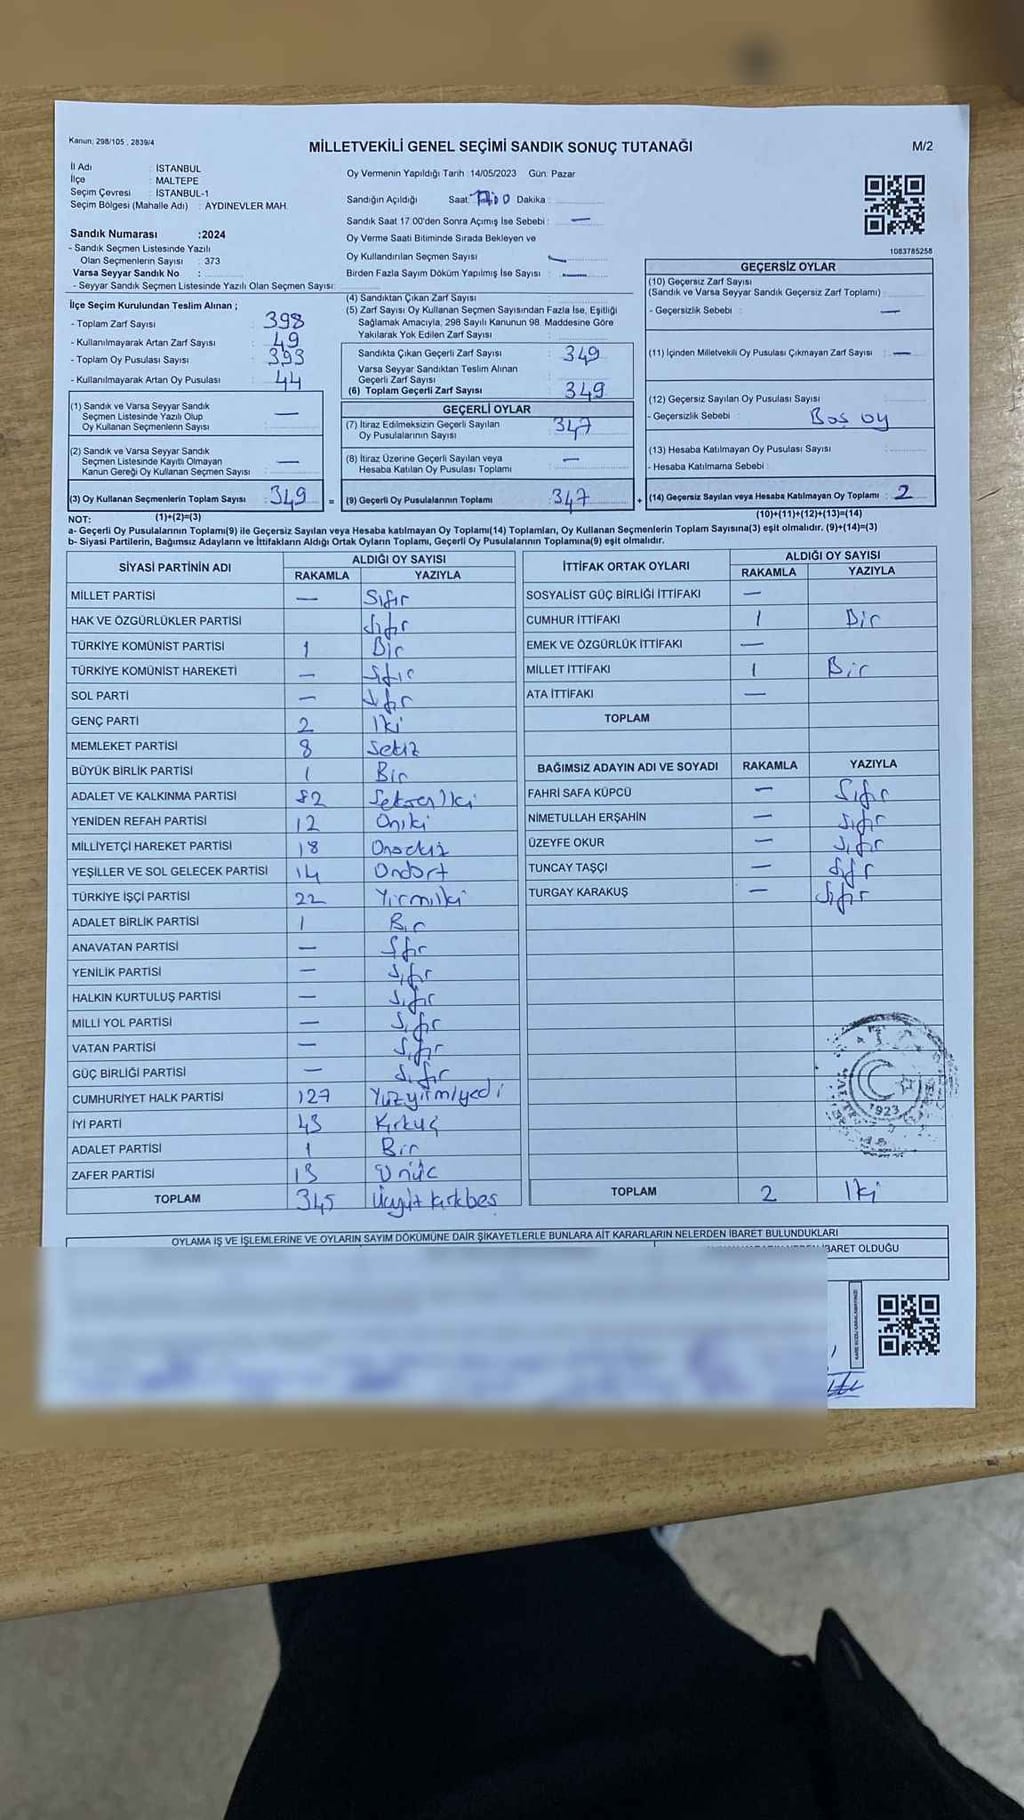 Kanun: 298/105 , 2839/4
MİLLETVEKİLİ GENEL SEÇİMİ SANDIK SONUÇ TUTANAĞI
M/2
İl Adı : İSTANBUL
İlçe : MALTEPE
Seçim Çevresi : İSTANBUL-1
Seçim Bölgesi (Mahalle Adı) : AYDINEVLER MAH.
Sandık Numarası :2024
- Sandık Seçmen Listesinde Yazılı
Olan Seçmenlerin Sayısı : 373
Varsa Seyyar Sandık No :
- Seyyar Sandık Seçmen Listesinde Yazılı Olan Seçmen Sayısı:
Oy Vermenin Yapıldığı Tarih :14/05/2023 Gün: Pazar
Sandığın Açıldığı Saat: Dakika :
Sandık Saat 17:00'den Sonra Açımış İse Sebebi : —
Oy Verme Saati Bitiminde Sırada Bekleyen ve
Oy Kullandırılan Seçmen Sayısı : —
Birden Fazla Sayım Döküm Yapılmış İse Sayısı : —
1083785258
İlçe Seçim Kurulundan Teslim Alınan ;
- Toplam Zarf Sayısı : 398
- Kullanılmayarak Artan Zarf Sayısı : 49
- Toplam Oy Pusulası Sayısı : 393
- Kullanılmayarak Artan Oy Pusulası : 44
(1) Sandık ve Varsa Seyyar Sandık
Seçmen Listesinde Yazılı Olup
Oy Kullanan Seçmenlerin Sayısı : —
(2) Sandık ve Varsa Seyyar Sandık
Seçmen Listesinde Kayıtlı Olmayan
Kanun Gereği Oy Kullanan Seçmen Sayısı : —
(3) Oy Kullanan Seçmenlerin Toplam Sayısı : 349 =
(1)+(2)=(3)
(4) Sandıktan Çıkan Zarf Sayısı :
(5) Zarf Sayısı Oy Kullanan Seçmen Sayısından Fazla İse, Eşitliği
Sağlamak Amacıyla, 298 Sayılı Kanunun 98. Maddesine Göre
Yakılarak Yok Edilen Zarf Sayısı :
Sandıkta Çıkan Geçerli Zarf Sayısı : 349
Varsa Seyyar Sandıktan Teslim Alınan
Geçerli Zarf Sayısı :
(6) Toplam Geçerli Zarf Sayısı : 349
GEÇERLİ OYLAR
(7) İtiraz Edilmeksizin Geçerli Sayılan
Oy Pusulalarının Sayısı : 347
(8) İtiraz Üzerine Geçerli Sayılan veya
Hesaba Katılan Oy Pusulası Toplamı : —
(9) Geçerli Oy Pusulalarının Toplamı : 347 +
GEÇERSİZ OYLAR
(10) Geçersiz Zarf Sayısı
(Sandık ve Varsa Seyyar Sandık Geçersiz Zarf Toplamı) :
- Geçersizlik Sebebi : —
(11) İçinden Milletvekili Oy Pusulası Çıkmayan Zarf Sayısı : —
(12) Geçersiz Sayılan Oy Pusulası Sayısı :
- Geçersizlik Sebebi : Boş oy
(13) Hesaba Katılmayan Oy Pusulası Sayısı :
- Hesaba Katılmama Sebebi :
(14) Geçersiz Sayılan veya Hesaba Katılmayan Oy Toplamı : 2
(10)+(11)+(12)+(13)=(14)
NOT:
a- Geçerli Oy Pusulalarının Toplamı(9) ile Geçersiz Sayılan veya Hesaba katılmayan Oy Toplamı(14) Toplamları, Oy Kullanan Seçmenlerin Toplam Sayısına(3) eşit olmalıdır. (9)+(14)=(3)
b- Siyasi Partilerin, Bağımsız Adayların ve İttifakların Aldığı Ortak Oyların Toplamı, Geçerli Oy Pusulalarının Toplamına(9) eşit olmalıdır.
SİYASİ PARTİNİN ADI ALDIĞI OY SAYISI
RAKAMLA YAZIYLA
MİLLET PARTİSİ — Sıfır
HAK VE ÖZGÜRLÜKLER PARTİSİ Sıfır
TÜRKİYE KOMÜNİST PARTİSİ 1 Bir
TÜRKİYE KOMÜNİST HAREKETİ — Sıfır
SOL PARTİ — Sıfır
GENÇ PARTİ 2 İki
MEMLEKET PARTİSİ 8 Sekiz
BÜYÜK BİRLİK PARTİSİ 1 Bir
ADALET VE KALKINMA PARTİSİ 82 Seksen İki
YENİDEN REFAH PARTİSİ 12 Oniki
MİLLİYETÇİ HAREKET PARTİSİ 18 Onsekiz
YEŞİLLER VE SOL GELECEK PARTİSİ 14 Ondört
TÜRKİYE İŞÇİ PARTİSİ 22 Yirmiiki
ADALET BİRLİK PARTİSİ 1 Bir
ANAVATAN PARTİSİ — Sıfır
YENİLİK PARTİSİ — Sıfır
HALKIN KURTULUŞ PARTİSİ — Sıfır
MİLLİ YOL PARTİSİ — Sıfır
VATAN PARTİSİ — Sıfır
GÜÇ BİRLİĞİ PARTİSİ — Sıfır
CUMHURİYET HALK PARTİSİ 127 Yüzyirmiyedi
İYİ PARTİ 43 Kırküç
ADALET PARTİSİ 1 Bir
ZAFER PARTİSİ 13 Onüç
TOPLAM 345 Üçyüz kırkbeş
İTTİFAK ORTAK OYLARI ALDIĞI OY SAYISI
RAKAMLA YAZIYLA
SOSYALİST GÜÇ BİRLİĞİ İTTİFAKI —
CUMHUR İTTİFAKI 1 Bir
EMEK VE ÖZGÜRLÜK İTTİFAKI —
MİLLET İTTİFAKI 1 Bir
ATA İTTİFAKI —
TOPLAM
BAĞIMSIZ ADAYIN ADI VE SOYADI RAKAMLA YAZIYLA
FAHRİ SAFA KÜPCÜ — Sıfır
NİMETULLAH ERŞAHİN — Sıfır
ÜZEYFE OKUR — Sıfır
TUNCAY TAŞÇI — Sıfır
TURGAY KARAKUŞ — Sıfır
1923
TOPLAM 2 İki
OYLAMA İŞ VE İŞLEMLERİNE VE OYLARIN SAYIM DÖKÜMÜNE DAİR ŞİKAYETLERLE BUNLARA AİT KARARLARIN NELERDEN İBARET BULUNDUKLARI
İBARET OLDUĞU